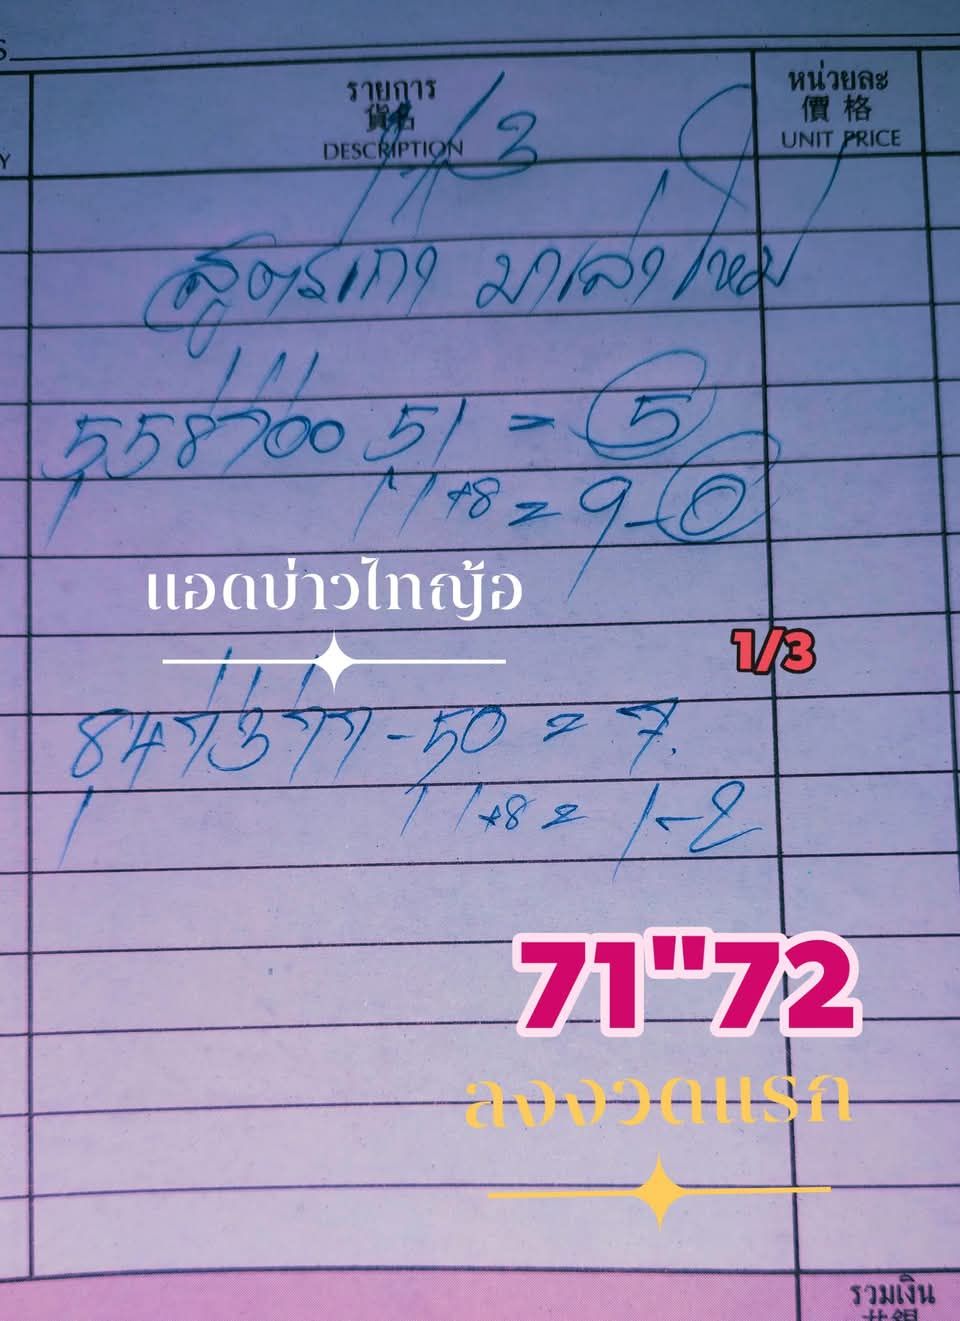 รายการ
貨名
DESCRIPTION
หน่วยละ
價格
UNIT PRICE
1/3
สูตรเก่า มาเล่าใหม่
55870051 = 5
1+8 = 9-0
แอดบ่าวไทญ้อ
1/3
847377-50 = 7.
+8 = 1-2
71"72
ลงงวดแรก
รวมเงิน